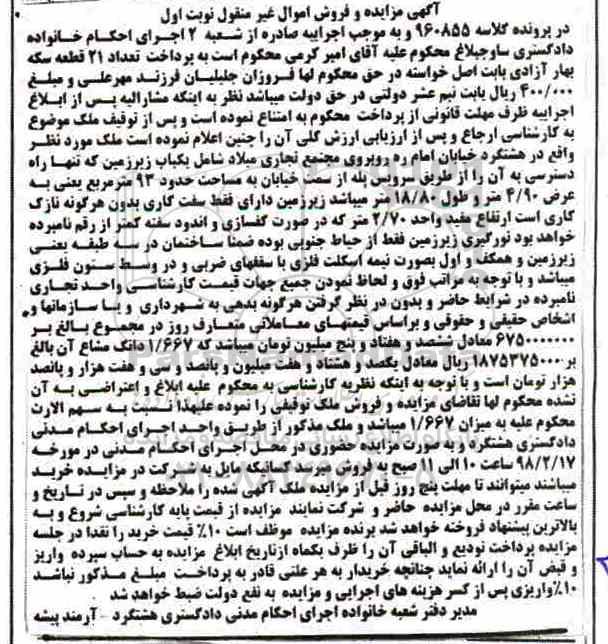 آگهی مزایده و فروش اموال غیر منقول نوبت اول
در پرونده کلاسه ۹۶۰۸۵۵ و به موجب اجراییه صادره از شعبه ۲ اجرای احکام خانواده
دادگستری ساوجبلاغ محکوم علیه آقای امیر کرمی محکوم است به پرداخت تعداد ۲۱ قطعه سکه
بهار آزادی بابت اصل خواسته در حق محکوم لها فروزان جلیلیان فرزند مهرعلی و مبلغ
۴۰۰/۰۰۰ ریال بابت نیم عشر دولتی در حق دولت میباشد نظر به اینکه مشارالیه پس از ابلاغ
اجراییه ظرف مهلت قانونی از پرداخت محکوم به امتناع نموده است و پس از توقیف ملک موضوع
به کارشناسی ارجاع و پس از ارزیابی ارزش کلی آن را چنین اعلام نموده است ملک مورد نظر
واقع در هشتگرد خیابان امام ره روبروی مجتمع تجاری میلاد شامل یکباب زیرزمین که تنها راه
دسترسی به آن را از طریق سرویس پله از سمت خیابان به مساحت حدود ۹۳ مترمربع یعنی به
عرض ۴/۹۰ متر و طول ۱۸/۸۰ متر میباشد زیرزمین دارای فقط سفت کاری بدون هرگونه نازک
کاری است ارتفاع مفید واحد ۲/۷۰ متر که در صورت کفسازی و اندود سفته کمتر از رقم نامبرده
خواهد بود نورگیری زیرزمین فقط از حیاط جنوبی بوده ضمنا ساختمان در سه طبقه یعنی
زیرزمین و همکف و اول بصورت نیمه اسکلت فلزی با سقفهای ضربی و در وسط ستون فلزی
میباشد و با توجه به مراتب فوق و لحاظ نمودن جمیع جهات قیمت کارشناسی واحد تجاری
نامبرده در شرایط حاضر و بدون در نظر گرفتن هرگونه بدهی به شهرداری و یا سازمانها و
اشخاص حقیقی و حقوقی و براساس قیمتهای معاملاتی متعارف روز در مجموع بالغ بر
۶۷۵۰۰۰۰۰۰۰ معادل ششصد و هفتاد و پنج میلیون تومان میباشد که ۱/۶۶۷ دانگ مشاع آن بالغ
بر ۱۸۷۵۳۷۵۰۰۰ ریال معادل یکصد و هشتاد و هفت میلیون و پانصد و سی و هفت هزار و پانصد
هزار تومان است و با توجه به اینکه نظریه کارشناسی به محکوم علیه ابلاغ و اعتراضی به آن
نشده محکوم لها تقاضای مزایده و فروش ملک توقیفی را نموده علیهذا نسبت به سهم الارث
محکوم علیه به میزان ۱/۶۶۷ میباشد و ملک مذکور از طریق واحد اجرای احکام مدنی
دادگستری هشتگرد و به صورت مزایده حضوری در محل اجرای احکام مدنی در مورخه
۹۸/۲/۱۷ ساعت ۱۰ الی ۱۱ صبح به فروش میرسد کسانیکه مایل به شرکت در مزایده خرید
میباشند میتوانند تا مهلت پنج روز قبل از مزایده ملک آگهی شده را ملاحظه و سپس در تاریخ و
ساعت مقرر در محل مزایده حاضر و شرکت نمایند مزایده از قیمت پایه کارشناسی شروع و به
بالاترین پیشنهاد فروخته خواهد شد برنده مزایده موظف است ۱۰٪ قیمت خرید را نقدا در جلسه
مزایده پرداخت تودیع و الباقی آن را ظرف یکماه ازتاریخ ابلاغ مزایده به حساب سپرده واریز
و قبض آن را ارائه نماید چنانچه خریدار به هر علتی قادر به پرداخت مبلغ مذکور نباشد
۱۰٪واریزی پس از کسر هزینه های اجرایی و مزایده به نفع دولت ضبط خواهد شد
مدیر دفتر شعبه خانواده اجرای احکام مدنی دادگستری هشتگرد - آرمند پیشه